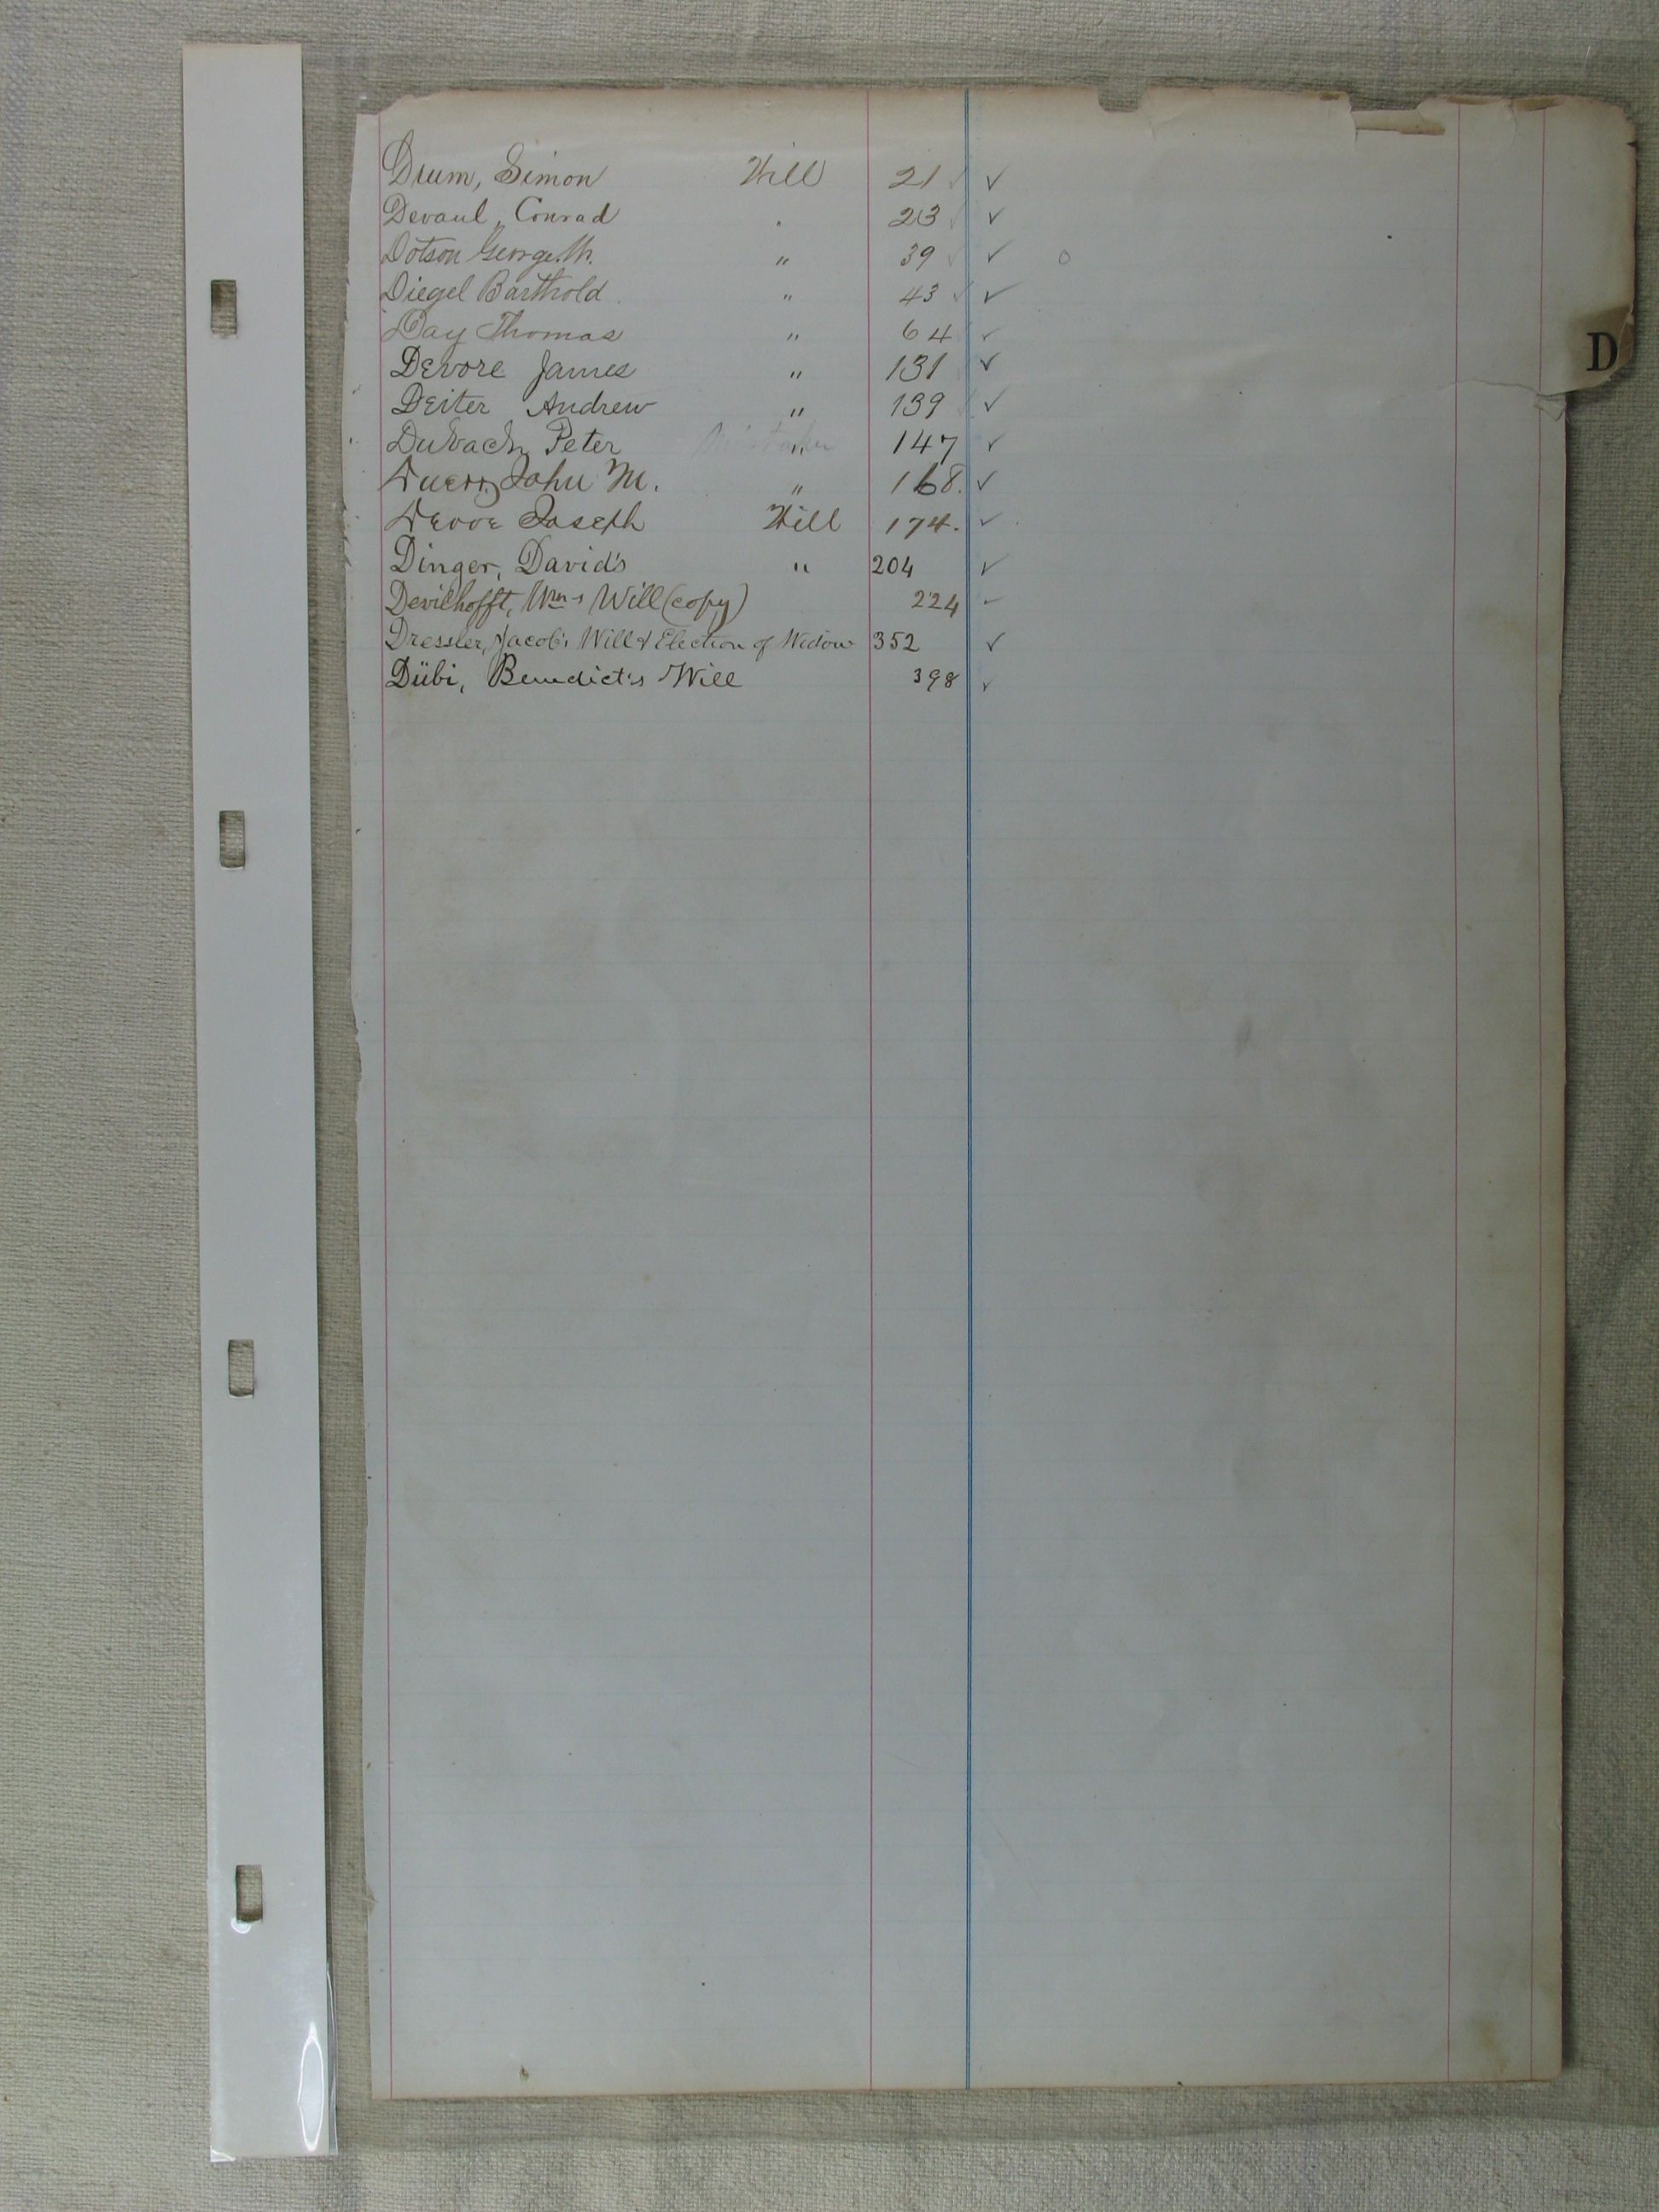 Drum, Simon Will 21 ✓ ✓
Devaul, Conrad . 23 ✓ ✓
Dotson George W. " 39 ✓ ✓ o
Diegel Barthold " 43 ✓ ✓
Day Thomas " 64 ✓
Devore James " 131 ✓
Deiter Andrew " 139 ✓
Dubach Peter " 147 ✓
Duerr, John M. " 168. ✓
Devoe Joseph Will 174. ✓
Dinger, David's " 204 ✓
D
Devilhofft, Wm's Will (copy) 224 ✓
Dressler, Jacob's Will & Election of Widow 352 ✓
Dübi, Benedict's Will 398 ✓